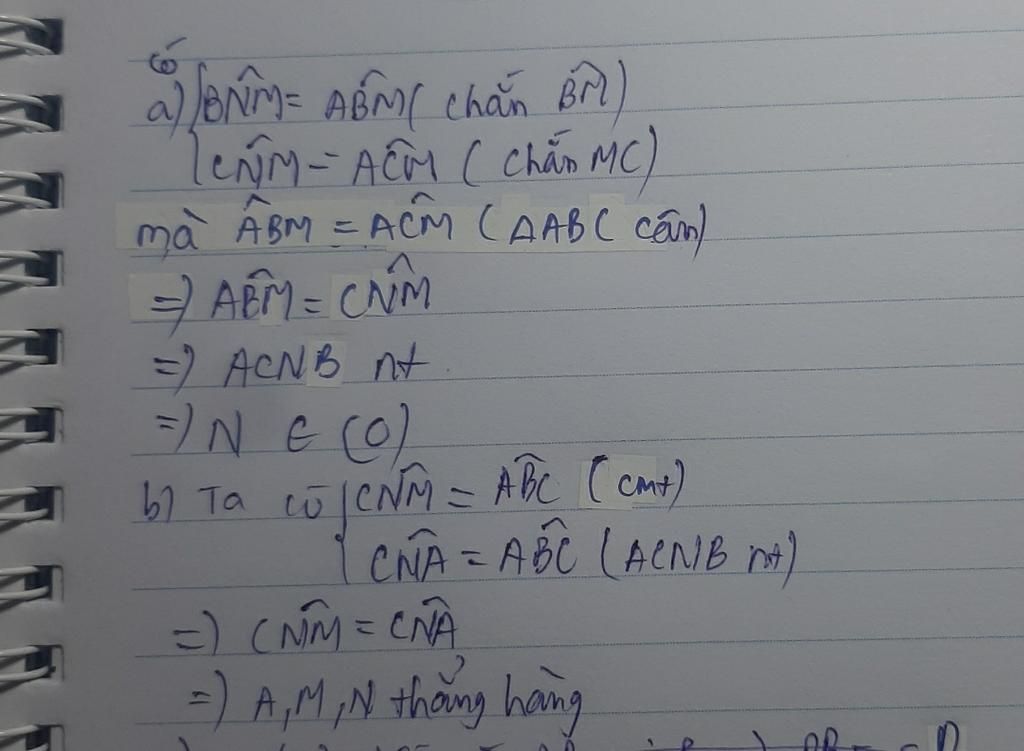 có
a) { BN̂M = AB̂M ( chắn BM̂ )
{ CN̂M = AĈM ( chắn MC )
mà ÂBM = AĈM ( ΔABC cân )
=) AB̂M = CN̂M
=) ACNB nt
=) N ∈ (O)
b) Ta có { CN̂M = AB̂C ( cmt )
{ CN̂A = AB̂C ( ACNB nt )
=) CN̂M = CN̂A
=) A, M, N thẳng hàng